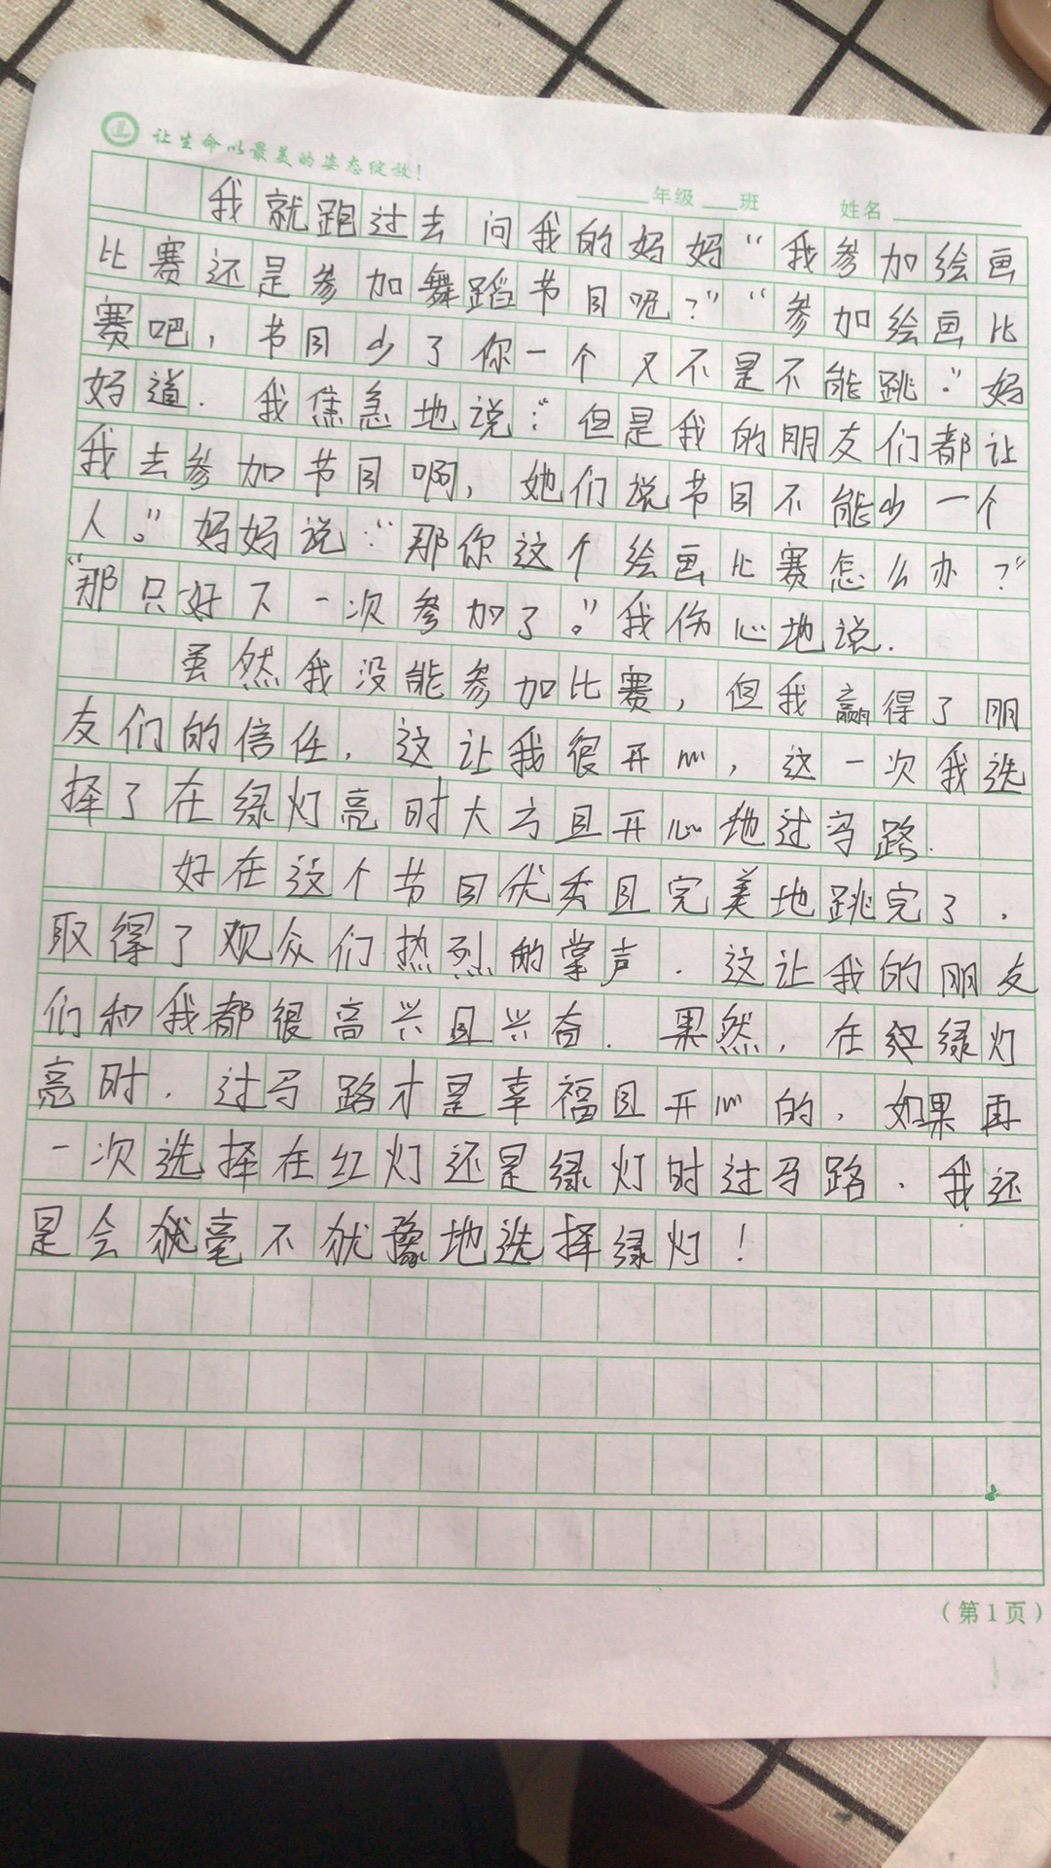 让生命以最美的姿态绽放!
年级 班 姓名
我就跑过去问我的妈妈“我参加绘画
比赛还是参加舞蹈节目呢?”“参加绘画比
赛吧,节目少了你一个又不是不能跳。”妈
妈道.我焦急地说:“但是我的朋友们都让
我去参加节目啊,她们说节目不能少一个
人。”妈妈说:“那你这个绘画比赛怎么办?”
“那只好下一次参加了。”我伤心地说.
虽然我没能参加比赛,但我赢得了朋
友们的信任,这让我很开心,这一次我选
择了在绿灯亮时大方且开心地过马路.
好在这个节目优秀且完美地跳完了,
取得了观众们热烈的掌声.这让我的朋友
们和我都很高兴且兴奋.果然,在绿灯
亮时,过马路才是幸福且开心的,如果再
一次选择在红灯还是绿灯时过马路,我还
是会毫不犹豫地选择绿灯!
(第1页)